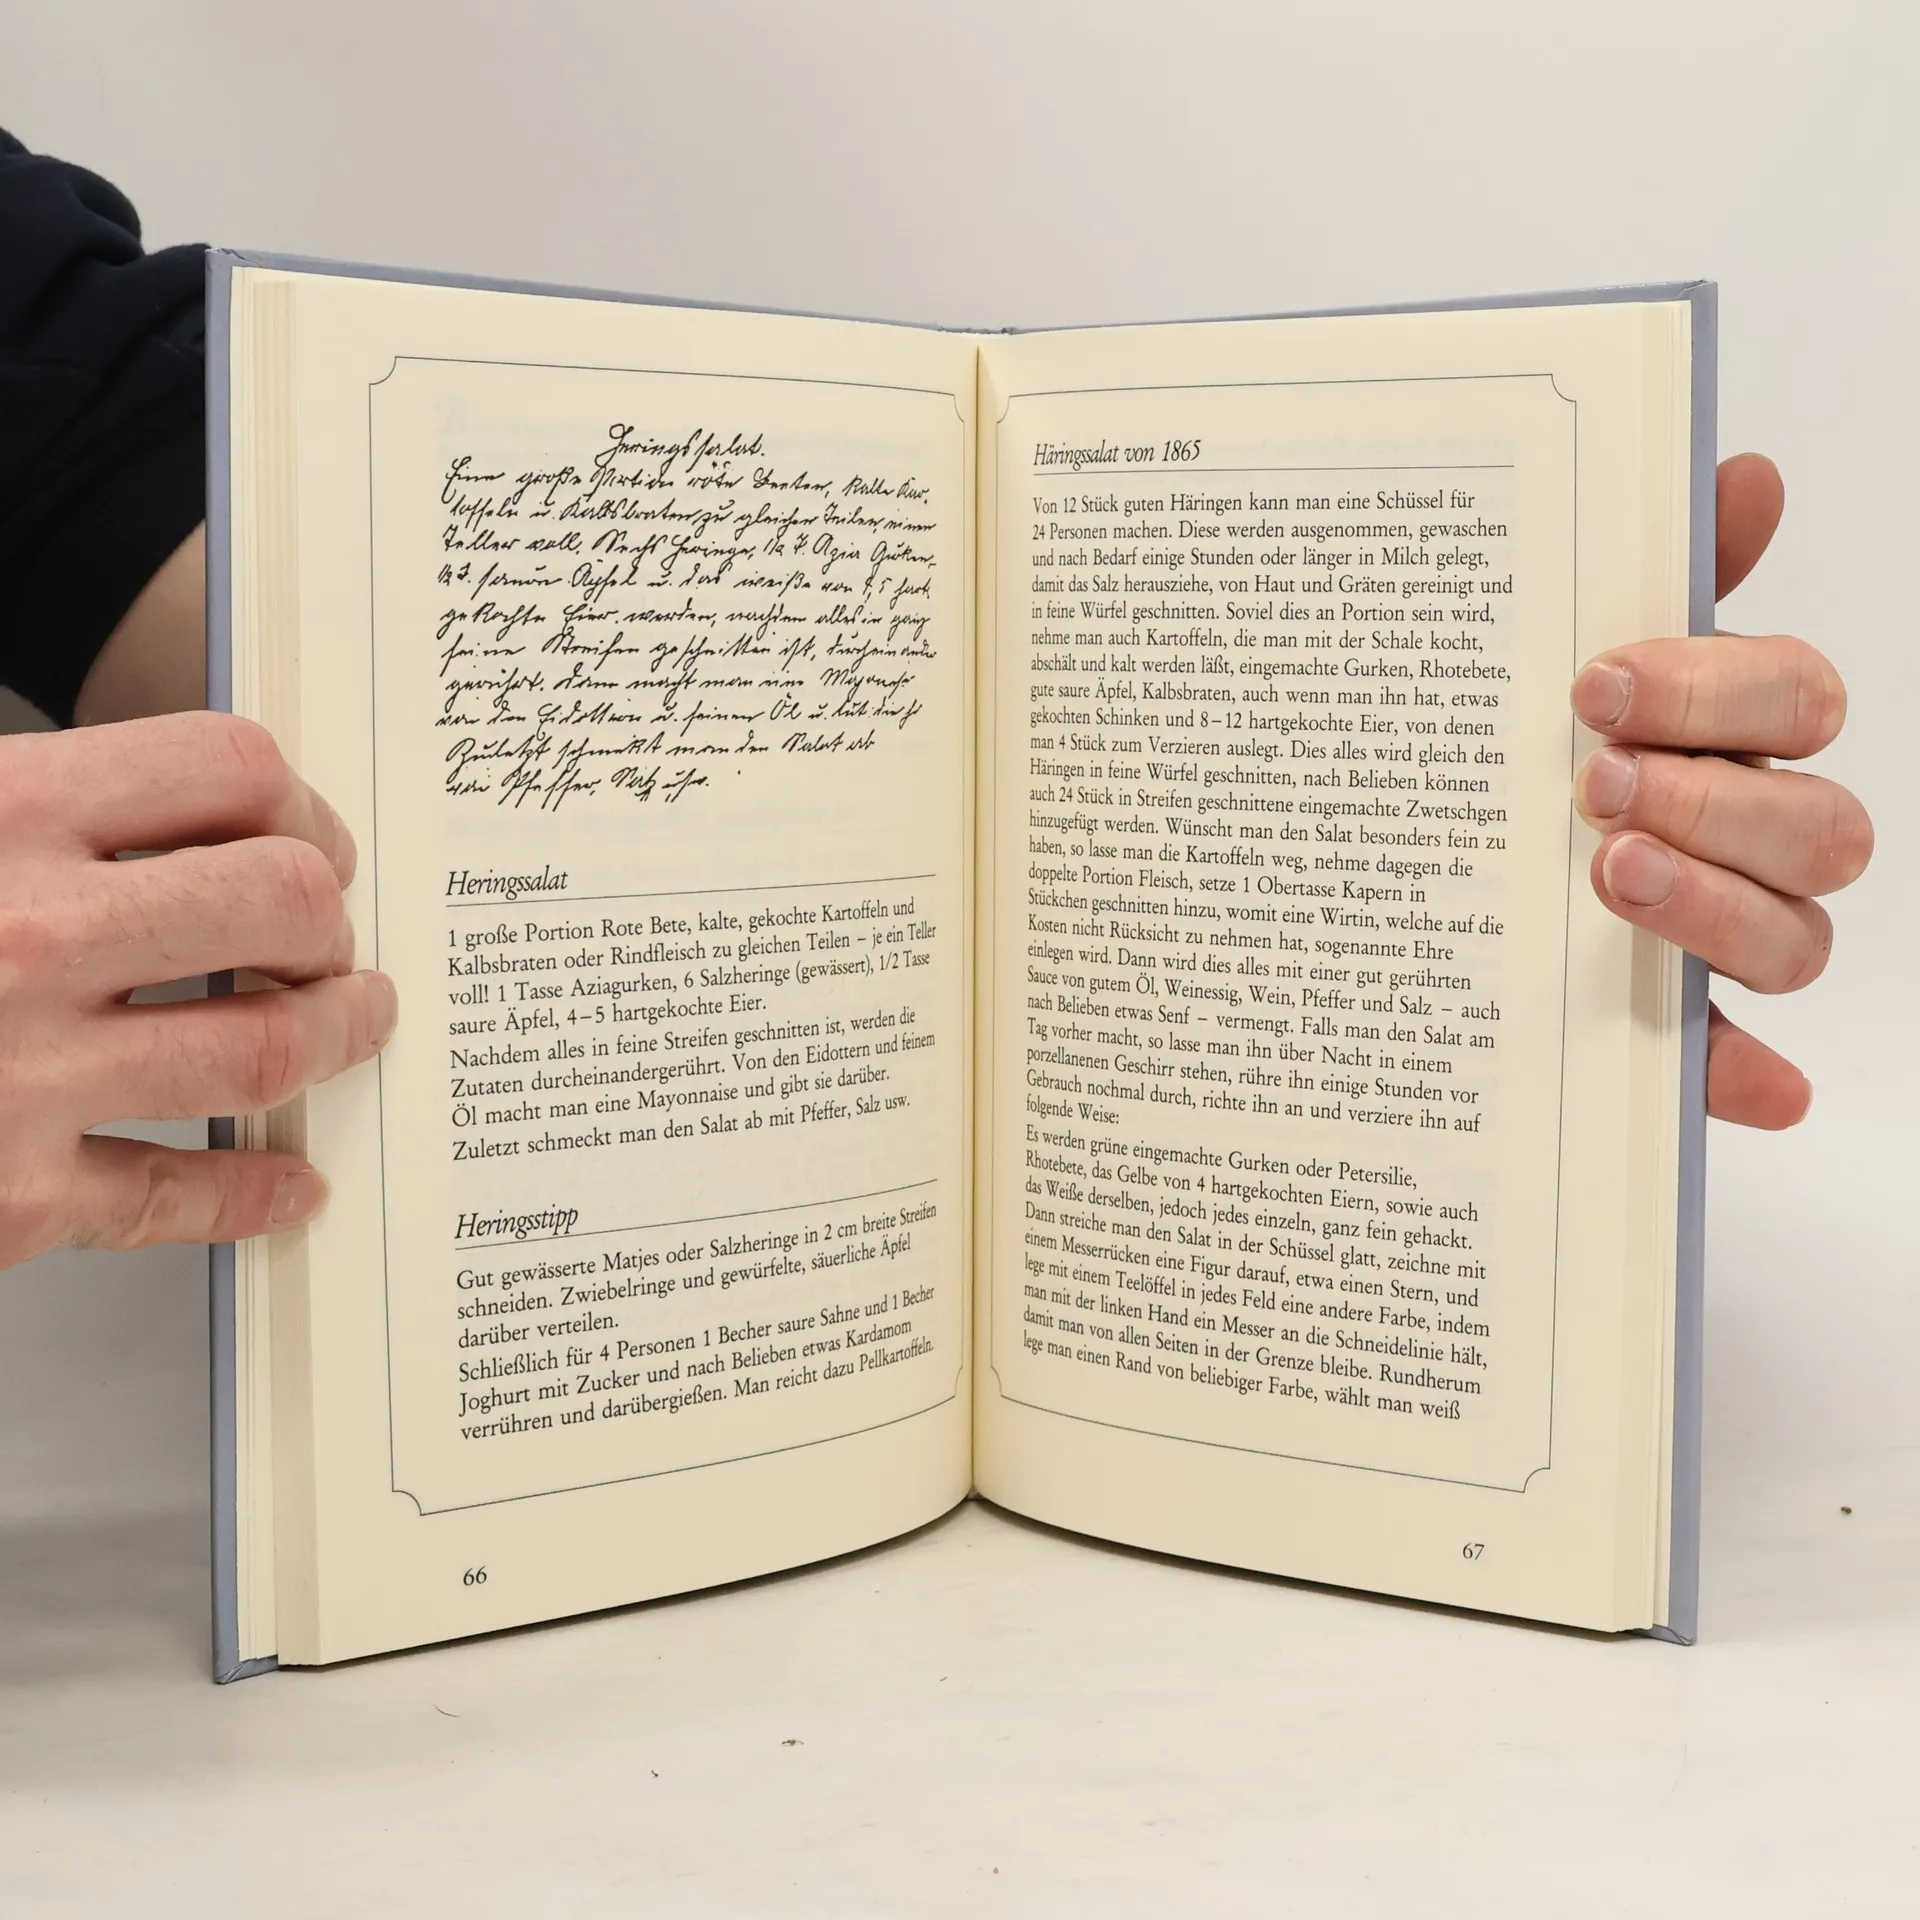 Heringssalat.
Eine große Portion rote Beeten, kalte Kar-
toffeln u. Kalbsbraten zu gleichen Teilen, einen
Teller voll. Sechs Heringe, 1/2 T. Azia Gurken,
1/2 T. saure Äpfel u. das weiße von 4, 5 hart
gekochte Eier werden, nachdem alles in ganz
feine Streifen geschnitten ist, durcheinander
gerührt. Dann macht man eine
von den Eidottern u. feinem Öl u. tut sie
Zuletzt schmeckt man den Salat ab
Pfeffer, Salz usw.
Heringssalat
1 große Portion Rote Bete, kalte, gekochte Kartoffeln und
Kalbsbraten oder Rindfleisch zu gleichen Teilen – je ein Teller
voll! 1 Tasse Aziagurken, 6 Salzheringe (gewässert), 1/2 Tasse
saure Äpfel, 4–5 hartgekochte Eier.
Nachdem alles in feine Streifen geschnitten ist, werden die
Zutaten durcheinandergerührt. Von den Eidottern und feinem
Öl macht man eine Mayonnaise und gibt sie darüber.
Zuletzt schmeckt man den Salat ab mit Pfeffer, Salz usw.
Heringsstipp
Gut gewässerte Matjes oder Salzheringe in 2 cm breite Streifen
schneiden. Zwiebelringe und gewürfelte, säuerliche Äpfel
darüber verteilen.
Schließlich für 4 Personen 1 Becher saure Sahne und 1 Becher
Joghurt mit Zucker und nach Belieben etwas Kardamom
verrühren und darübergießen. Man reicht dazu Pellkartoffeln.
66
Häringssalat von 1865
Von 12 Stück guten Häringen kann man eine Schüssel für
24 Personen machen. Diese werden ausgenommen, gewaschen
und nach Bedarf einige Stunden oder länger in Milch gelegt,
damit das Salz herausziehe, von Haut und Gräten gereinigt und
in feine Würfel geschnitten. Soviel dies an Portion sein wird,
nehme man auch Kartoffeln, die man mit der Schale kocht,
abschält und kalt werden läßt, eingemachte Gurken, Rhotebete,
gute saure Äpfel, Kalbsbraten, auch wenn man ihn hat, etwas
gekochten Schinken und 8–12 hartgekochte Eier, von denen
man 4 Stück zum Verzieren auslegt. Dies alles wird gleich den
Häringen in feine Würfel geschnitten, nach Belieben können
auch 24 Stück in Streifen geschnittene eingemachte Zwetschgen
hinzugefügt werden. Wünscht man den Salat besonders fein zu
haben, so lasse man die Kartoffeln weg, nehme dagegen die
doppelte Portion Fleisch, setze 1 Obertasse Kapern in
Stückchen geschnitten hinzu, womit eine Wirtin, welche auf die
Kosten nicht Rücksicht zu nehmen hat, sogenannte Ehre
einlegen wird. Dann wird dies alles mit einer gut gerührten
Sauce von gutem Öl, Weinessig, Wein, Pfeffer und Salz – auch
nach Belieben etwas Senf – vermengt. Falls man den Salat am
Tag vorher macht, so lasse man ihn über Nacht in einem
porzellanenen Geschirr stehen, rühre ihn einige Stunden vor
Gebrauch nochmal durch, richte ihn an und verziere ihn auf
folgende Weise:
Es werden grüne eingemachte Gurken oder Petersilie,
Rhotebete, das Gelbe von 4 hartgekochten Eiern, sowie auch
das Weiße derselben, jedoch jedes einzeln, ganz fein gehackt.
Dann streiche man den Salat in der Schüssel glatt, zeichne mit
einem Messerrücken eine Figur darauf, etwa einen Stern, und
lege mit einem Teelöffel in jedes Feld eine andere Farbe, indem
man mit der linken Hand ein Messer an die Schneidelinie hält,
damit man von allen Seiten in der Grenze bleibe. Rundherum
lege man einen Rand von beliebiger Farbe, wählt man weiß
67